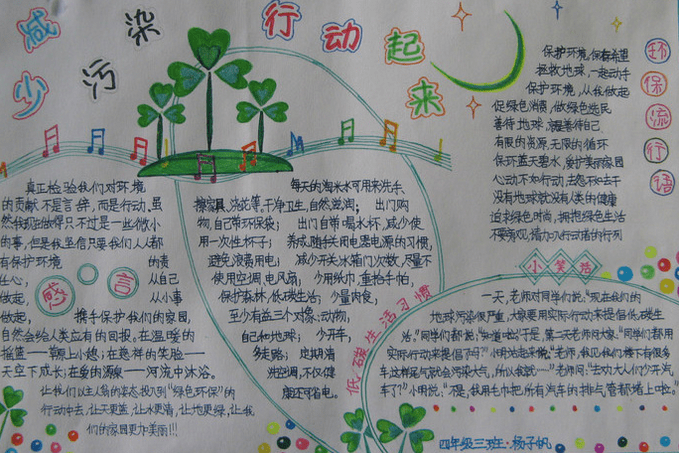 减少污染 行动起来
环保流行语
保护环境,保存希望
拯救地球,一起动手
保护环境,从我做起
促绿色消费,做绿色选民
善待地球,就是善待自己
有限的资源,无限的循环
保环蓝天碧水,爱护美丽家园
心动不如行动,去怨不如去干
没有地球就没有人类的健康
迫求绿色时尚,拥抱绿色生活
不要旁观,请加入行动者的行列
感言
真正检验我们对环境
的贡献不是言辞,而是行动,虽
然我现在做得只不过是一些微小
的事,但是我坚信只要我们人人都
有保护环境的责
任心,从自己
做起,从小事
做起,携手保护我们的家园,
自然会给人类应有的回报。在温暖的
摇篮——草原上小憩;在慈祥的笑脸——
天空下成长;在爱的源泉——河流中沐浴。
让我们以主人翁的姿态,投入到“绿色环保”的
行动中去,让天更蓝,让水更清,让地更绿,让我
们的家园更加美丽!!!
低碳生活习惯
每天的淘米水可用来洗手、
擦家具、浇花等。干净卫生,自然滋润;出门购
物,自己带环保袋;出门自带喝水杯,减少使
用一次性杯子;养成随手关用电器电源的习惯,
避免浪费用电;减少开关冰箱门次数,尽量不
使用空调、电风扇;少用纸巾,重拾手帕,
保护森林,低碳生活;少量肉食,
至少有益三个对象:动物,
自己和地球;少开车,
多走路;定期清
洗空调,不仅健
康还可省电。
小笑话
一天,老师对同学们说:“现在我们的
地球污染很严重,大家要用实际行动来提倡低碳生
活。”同学们都说:“知道啦!”于是,第二天老师问大家:“同学们都用
实际行动来提倡了吗?”小明站起来说:“老师,我见我们楼下有很多
车,这样尾气就会污染大气,所以我就……”老师问:“生功大人们少开汽
车了?”小明说:“不是,我用毛巾把所有汽车的排气管都堵上啦。”
四年级三班·杨子帆